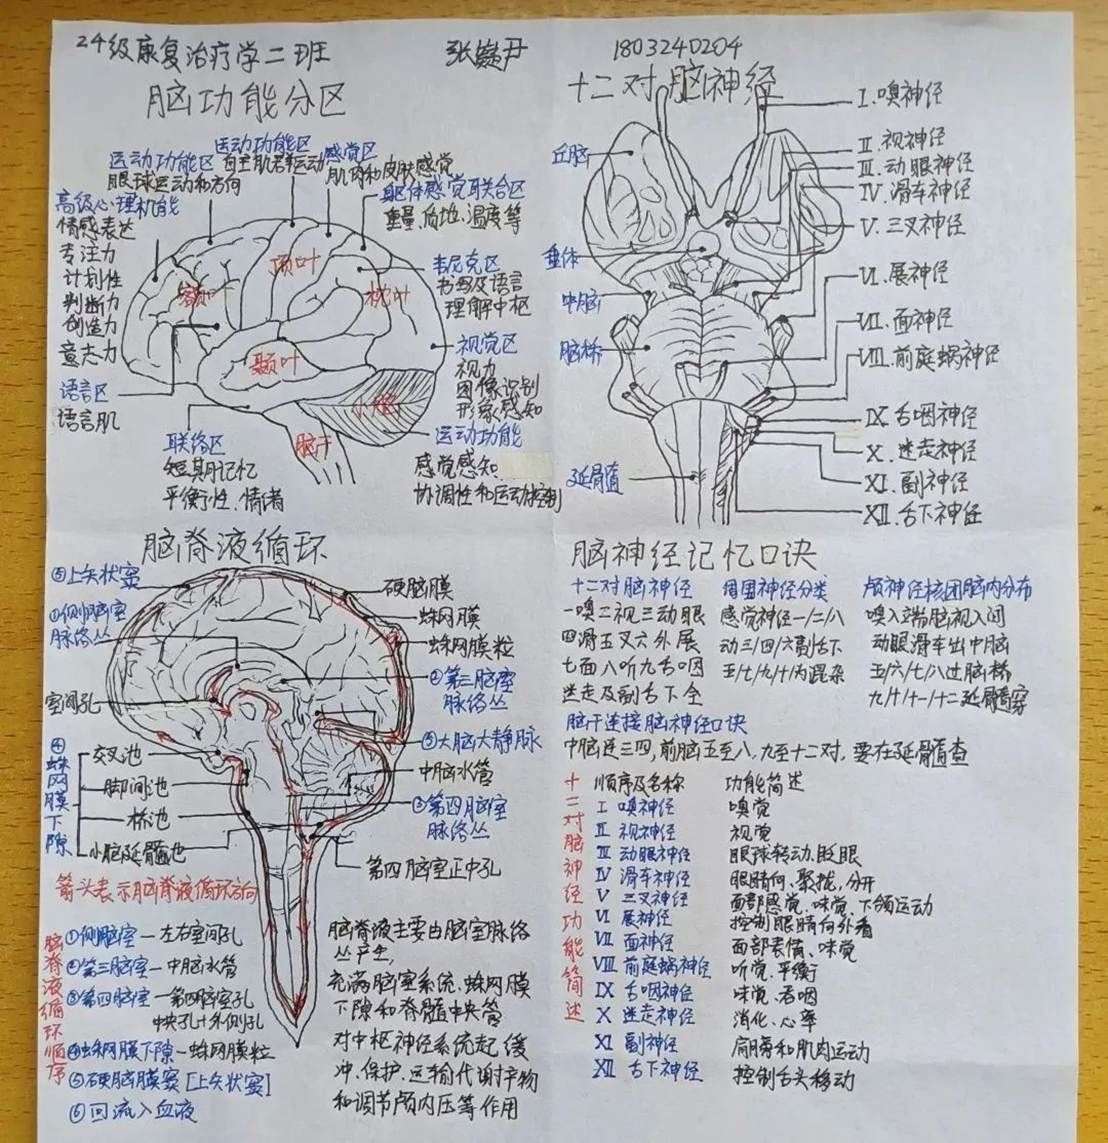 24级康复治疗学二班
张巍丹
1803240204
脑功能分区
运动功能区
眼球运动和方向
运动功能区
自主肌若率运动
感觉区
肌肉和皮肤感觉
躯体感觉联合区
重量、质地、温度等
高级心理机能
情感表达
专注力
计划性
判断力
创造力
意志力
语言区
语言肌
韦尼克区
书写及语言
理解中枢
视觉区
视力
图像识别
形象感知
运动功能
感觉感知
协调性和运动控制
联络区
短期记忆
平衡性、情绪
额叶
顶叶
枕叶
颞叶
小脑
脑干
十二对脑神经
丘脑
垂体
中脑
脑桥
延骨髓
I.嗅神经
II.视神经
III.动眼神经
IV.滑车神经
V.三叉神经
VI.展神经
VII.面神经
VIII.前庭蜗神经
IX.舌咽神经
X.迷走神经
XI.副神经
XII.舌下神经
脑脊液循环
⑤上矢状窦
①侧脑室
脉络丛
室间孔
④蛛网膜下隙
交叉池
脚间池
桥池
小脑延髓池
硬脑膜
蛛网膜
蛛网膜粒
②第三脑室
脉络丛
⑤大脑大静脉
中脑水管
③第四脑室
脉络丛
第四脑室正中孔
箭头表示脑脊液循环方向
脑脊液循环顺序
①侧脑室—左右室间孔
②第三脑室—中脑水管
③第四脑室—第四脑室孔
中央孔+外侧孔
④蛛网膜下隙—蛛网膜粒
⑤硬脑膜窦[上矢状窦]
⑥回流入血液
脑脊液主要由脑室脉络
丛产生,
充满脑室系统、蛛网膜
下隙和脊髓中央管
对中枢神经系统起缓
冲、保护、运输代谢产物
和调节颅内压等作用
脑神经记忆口诀
十二对脑神经
一嗅二视三动眼
四滑五叉六外展
七面八听九舌咽
迷走及副舌下全
周围神经分类
感觉神经一/二/八
动三/四/六副舌下
五/七/九/十为混杂
颅神经核团脑内分布
嗅入端脑视入间
动眼滑车出中脑
五/六/七/八过脑桥
九/十/十一/十二延髓寄
脑干连接脑神经口诀
中脑连三四,前脑五至八,九至十二对,要在延骨髓查
十二对脑神经功能简述
顺序及名称 功能简述
I 嗅神经 嗅觉
II 视神经 视觉
III 动眼神经 眼球转动、眨眼
IV 滑车神经 眼睛向、聚拢,分开
V 三叉神经 面部感觉、味觉、下颌运动
VI 展神经 控制眼睛向外看
VII 面神经 面部表情、味觉
VIII 前庭蜗神经 听觉、平衡
IX 舌咽神经 味觉、吞咽
X 迷走神经 消化、心率
XI 副神经 肩膀和肌肉运动
XII 舌下神经 控制舌头移动